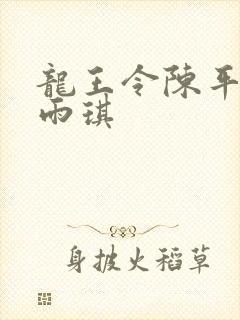 龍王令陳平
雨琪
身披火稻草